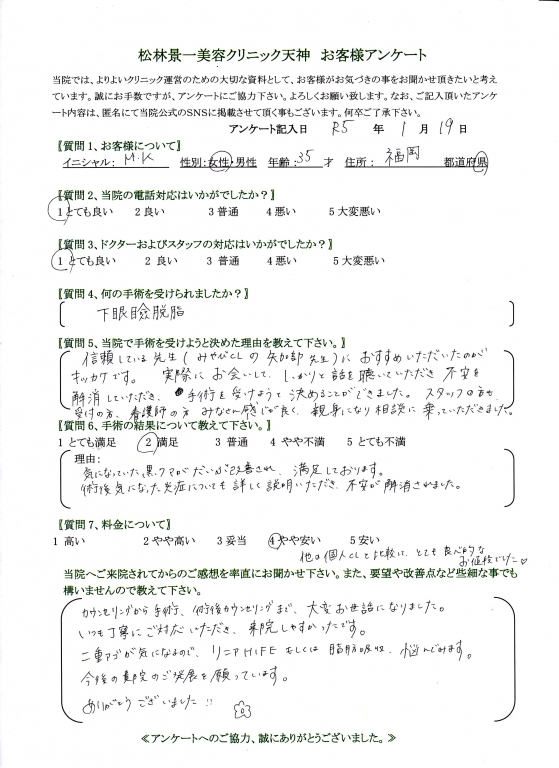 松林景一美容クリニック天神 お客様アンケート
当院では、よりよいクリニック運営のための大切な資料として、お客様がお気づきの事をお聞かせ頂きたいと考え
ています。誠にお手数ですが、アンケートにご協力下さい。よろしくお願い致します。なお、ご記入頂いたアンケ
ート内容は、匿名にて当院公式のSNSに掲載させて頂く事もございます。何卒ご了承下さい。
アンケート記入日 R5 年 1 月 19 日
〖質問1、お客様について〗
イニシャル: M.K 性別:女性・男性 年齢:35 才 住所: 福岡 都道府県
〖質問2、当院の電話対応はいかがでしたか?〗
1とても良い 2良い 3普通 4悪い 5大変悪い
〖質問3、ドクターおよびスタッフの対応はいかがでしたか?〗
1とても良い 2 良い 3 普通 4悪い 5大変悪い
〖質問4、何の手術を受けられましたか?〗
下眼瞼脱脂
〖質問5、当院で手術を受けようと決めた理由を教えて下さい。〗
信頼している先生(みやびCLの矢加部先生)におすすめいただいたのが
キッカケです。 実際にお会いして、しっかりと話を聴いていただき 不安を
解消していただき、手術を受けようと決めることができました。 スタッフの方も
受付の方、看護師の方 みなさん感じが良く、親身になり相談に乗っていただきました。
〖質問6、手術の結果について教えて下さい。〗
1 とても満足 2 満足 3 普通 4 やや不満 5 とても不満
理由:
気になっていた黒クマがだいぶ改善され、満足しております。
術後気になった炎症についても詳しく説明いただき、不安が解消されました。
〖質問7、料金について〗
1 高い 2やや高い 3妥当 4やや安い 5安い
他の個人CLと比較して、とても良心的な
お値段でした♡
当院へご来院されてからのご感想を率直にお聞かせ下さい。また、要望や改善点など些細な事でも
構いませんので教えて下さい。
カウンセリングから手術、術後カウンセリングまで、大変お世話になりました。
いつも丁寧にご対応いただき、来院しやすかったです。
二重アゴが気になるので、リニアHIFEもしくは脂肪吸収、悩んでみます。
今後の貴院のご発展を願っています。
ありがとうございました!!
≪アンケートへのご協力、誠にありがとうございました。≫